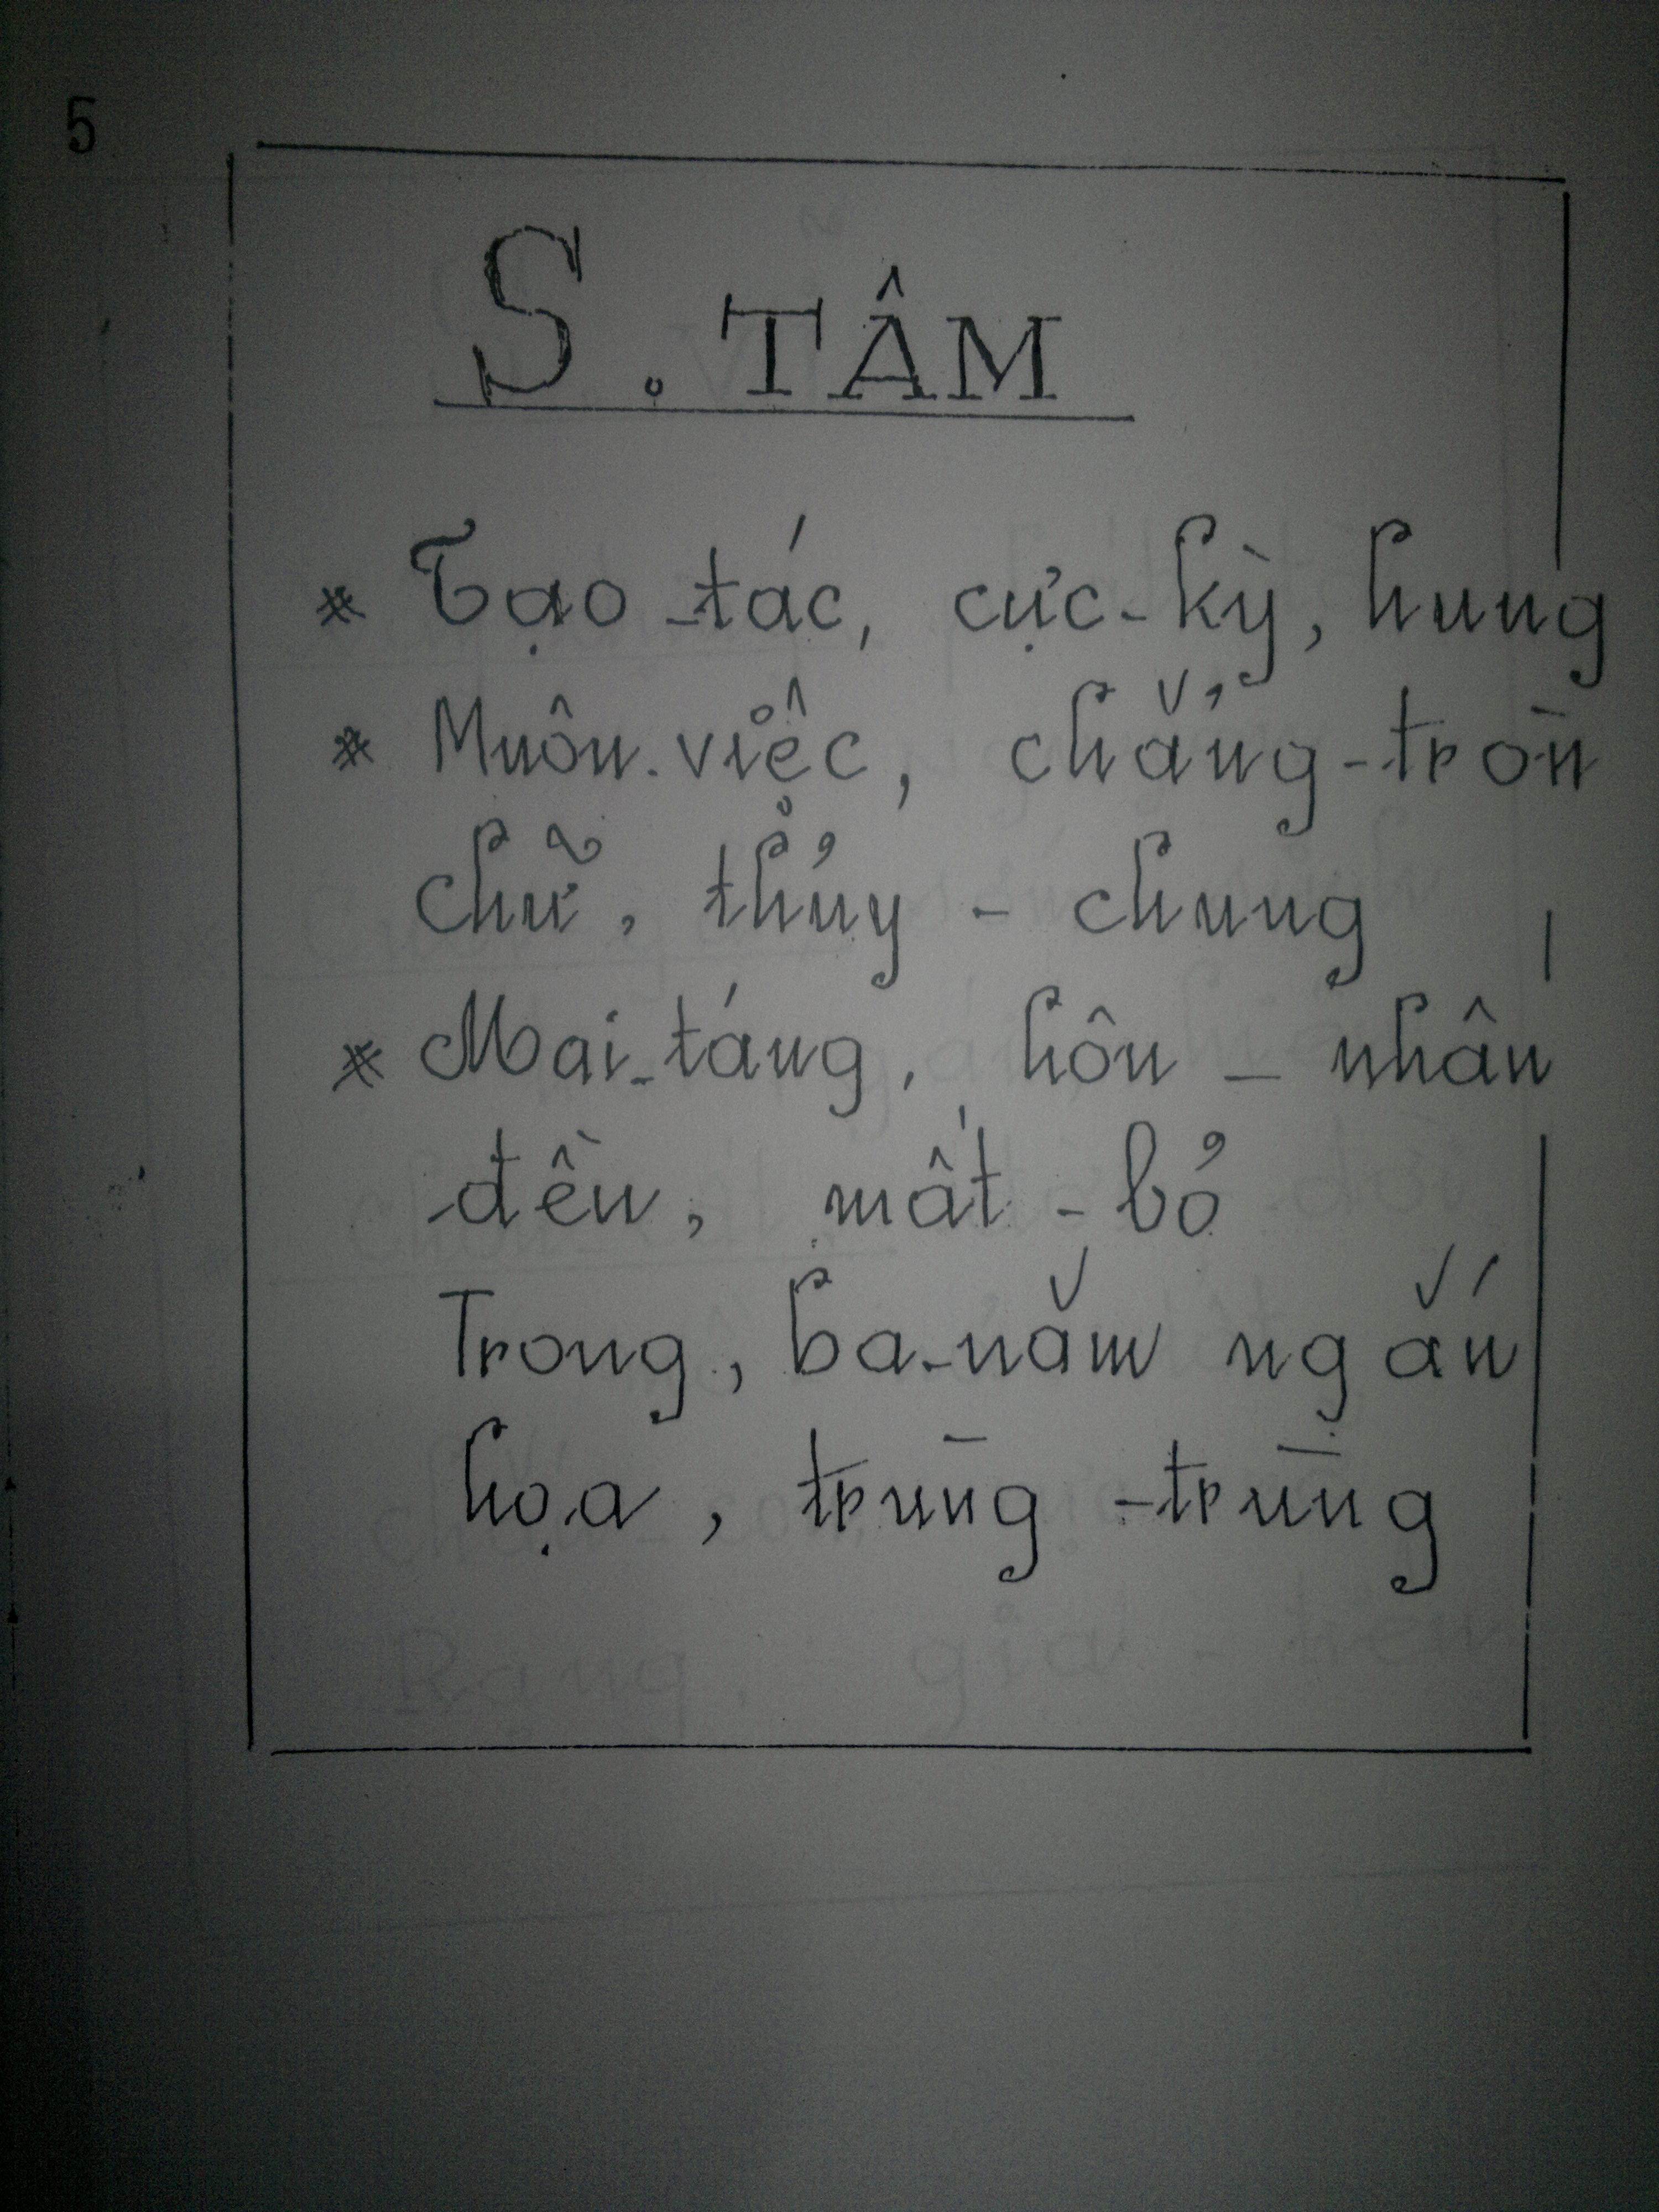 5
S. TÂM
* Tạo-tác, cực-kỳ, hung
* Muôn-việc, chẳng-tròn
chữ, thủy - chung
* Mai-táng, hôn - nhân
đều, mất - bỏ
Trong, ba-năm ngắn
họa, trùng -trùng